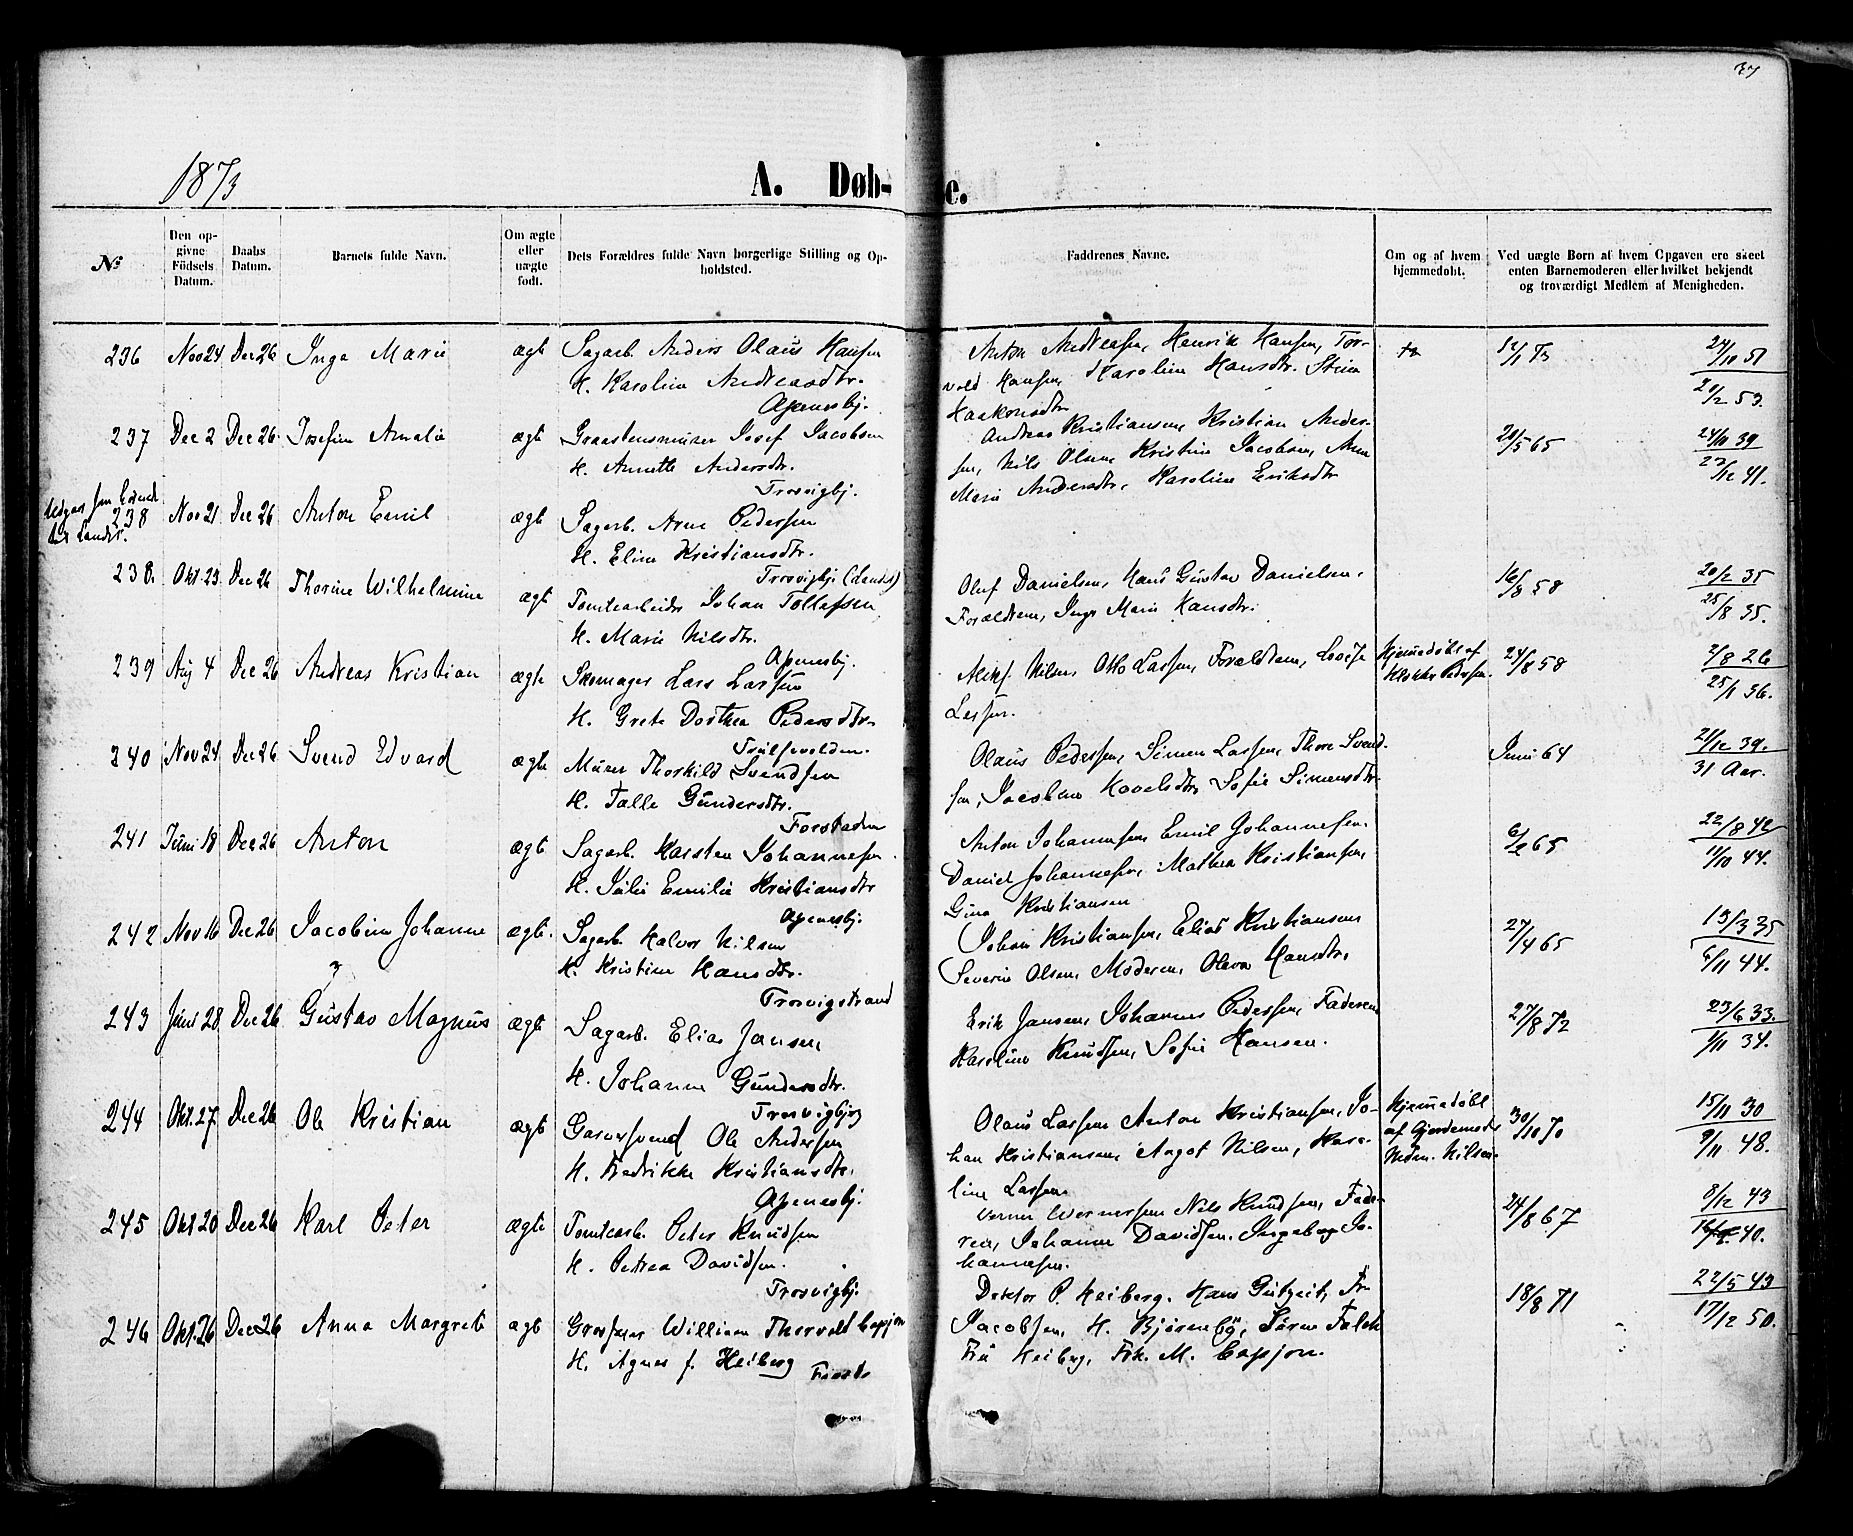 37
1873
A. Døb-
e.
№
Den op-
givne
Födsels
Datum.
Daabs
Datum.
Barnets fulde Navn.
Om ægte
eller
uægte
født.
Dets Forældres fulde Navn borgerlige Stilling og Op-
holdsted.
Faddrenes Navne.
Om og af hvem
hjemmedøbt.
Ved uægte Børn af hvem Opgaven ere skeet
enten Barnemoderen eller hvilket bekjendt
og troværdigt Medlem af Menigheden.
236 Nov 24 Dec 26 Inga Marie ægt Sagarb. Anders Olaus Hansen
H. Karoline Andreasdtr.
Apenesbj.
Anton Andreasen, Henrik Hansen, Tor-
vald Hansen, Karoline Hansdtr. Stina
Haakonsdtr
12/1 73
24/10 51
20/2 53.
237 Dec 2 Dec 26 Josefine Amalie ægt Graastensmurer Josef Jacobsen
H. Annette Andersdtr.
Trosvigbj.
Andreas Kristiansen, Kristian Ander-
sen, Nils Olsen, Kristine Jacobsen, Anna
Marie Andersdtr, Karoline Eriksdtr
20/5 65
24/11 39
27/12 41.
238 Nov 21 Dec 26 Anton Emil ægt Sagarb. Arne Pedersen
H. Eline Kristiansdtr.
Trosvigbj. (Landet)
238. Okt. 23 Dec 26 Thorine Wilhelmine ægt Tomtearbeider Johan Tollefsen
H. Marie Nilsdtr.
Apenesbj.
Oluf Danielsen, Hans Gustav Danielsen,
Forældrene, Inge Marie Hansdtr.
16/8 58
20/2 35
25/8 35.
239 Aug 4 Dec 26 Andreas Kristian ægte Skomager Lars Larsen
H. Grete Dorthea Pedersdtr.
Trulsevolden.
Nilsen, Otto Larsen, Forældrene, Lovise
Larsen.
Hjemmedøbt af
Klokker Pedersen.
24/8 58
2/8 26
25/1 36.
240 Nov 24 Dec 26 Svend Edvard ægte Murer Thorkild Svendsen
H. Talle Gundersdtr.
Forstaden
Olaus Pedersen, Simen Larsen, Thore Svend-
sen, Jacobine Hovelsdtr, Sofie Simensdtr.
Juni 64
21/12 39.
31 Aar.
241 Juni 18 Dec 26 Anton ægt Sagarb. Karsten Johannesen
H. Julie Emilie Kristiansdtr
Apenesbj.
Anton Johannesen, Emil Johannesen.
Daniel Johannesen, Mathea Kristiansen,
Gina Kristiansen
6/2 65
22/8 42
11/10 44.
242 Nov 16 Dec 26 Jacobine Johanne ægt. Sagarb. Halvor Nilsen
H. Kristine Hansdtr.
Trosvigstrand
Johan Kristiansen, Elias Kristiansen
Severin Olsen, Moderen, Oleva Hansdtr,
27/4 65
13/3 35
6/11 44.
243 Juni 28 Dec 26 Gustav Magnus ægt Sagarb. Elias Jansen
H. Johanne Gundersdtr.
Trosvigbjerg
Erik Jansen, Johannes Pedersen, Faderen
Karoline Knudsen, Sofie Hansen.
27/8 72
23/6 33.
1/11 34.
244 Okt. 27 Dec 26 Ole Kristian ægt Garversvend Ole Andersen
H. Fredrikke Kristiansdtr.
Apenesbj.
Olaus Larsen Anton Kristiansen, Jo-
han Kristiansen, Nilsen, Karo-
line Larsen
Hjemmedøbt
af Gjordemoder
Mdm. Nilsen.
30/10 70
15/11 30
9/11 48.
245 Okt 20 Dec 26 Karl Peter ægte Tomtearb. Peter Knudsen
H. Petrea Davidsen.
Trosvigbj.
Verner Wernersen Nils Knudsen, Fade-
ren, Johanne Davidsen. Ingeborg Jo-
hannesen.
24/8 67
8/12 43
40.
246 Okt. 26 Dec 26 Anna Margrete ægt Grosserer William Thorvald Capjon
H. Agnes f. Heiberg
Doktor P. Heiberg. Hans Gutzeit, Fr
Jacobsen, H. Bjørneby, Sørine Falch
Fru Heiberg, Frk. M. Capjon.
18/8 71
22/5 43
17/12 50.